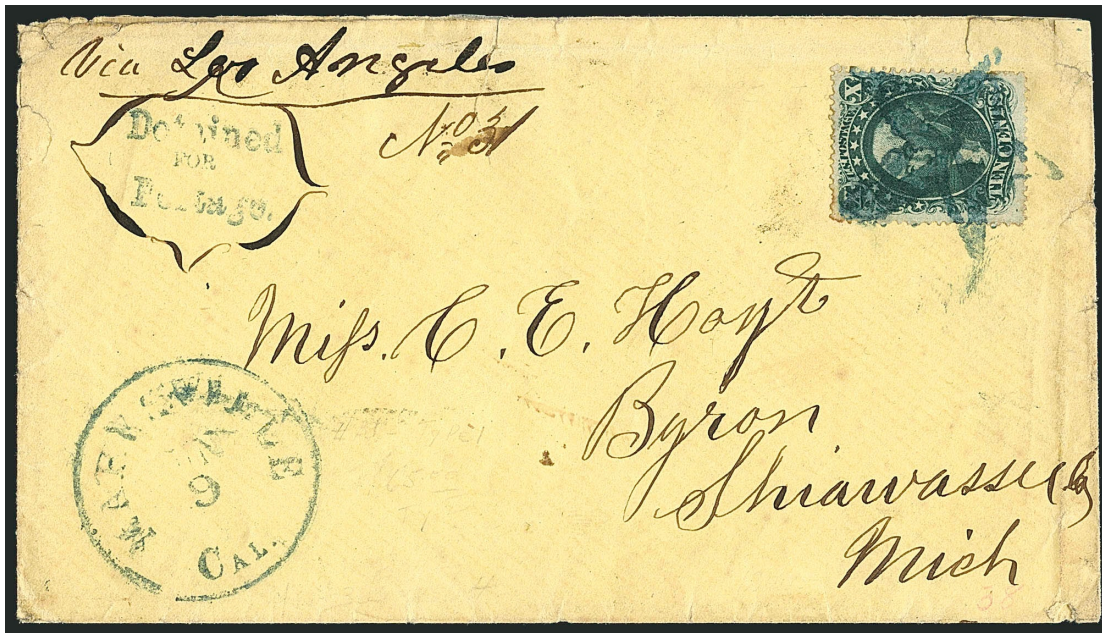 Via Los Angeles
No 31
Detained
FOR
Postage.
U.S. POSTAGE
X
TEN CENTS
Miss. C. E. Hoyt
Byron
Shiawassee Co
Mich
MARYSVILLE
9
CAL.